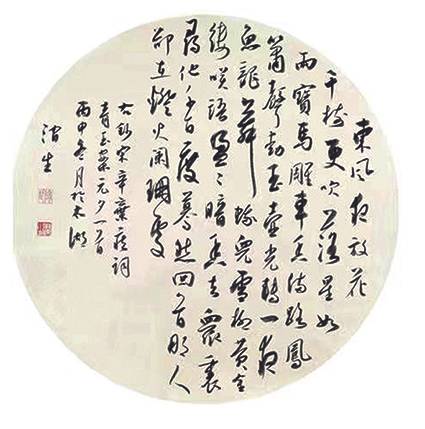 東風夜放花
千樹更吹落星如
雨寶馬雕車香滿路鳳
簫聲動玉壺光轉一夜
魚龍舞蛾兒雪柳黃金
縷咲語盈〻暗香去衆裏
尋他千百度驀然回首那人
却在燈火闌珊處
右録宋辛棄疾詞
青玉案元夕一首
丙申冬月於湖
生